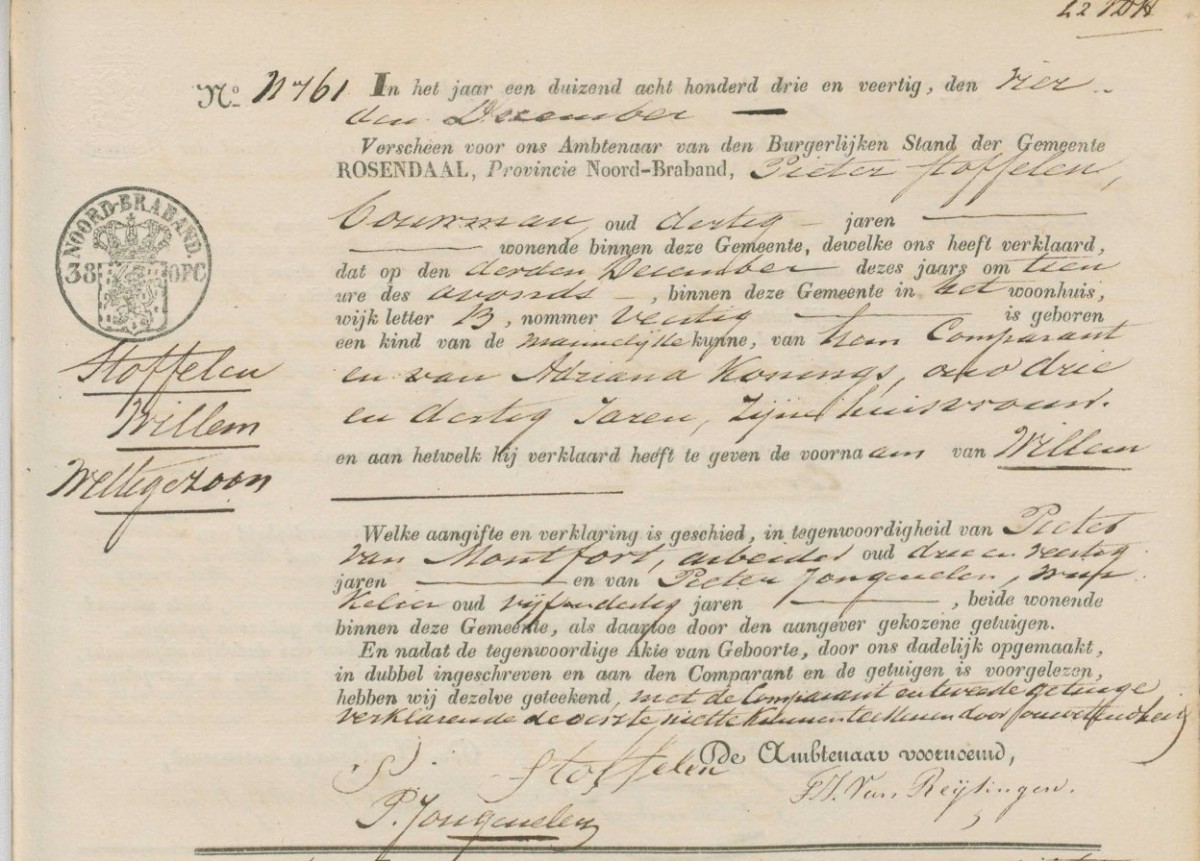 No. 161 In het jaar een duizend acht honderd drie en veertig, den vier
den December
Verscheen voor ons Ambtenaar van den Burgerlijken Stand der Gemeente
ROSENDAAL, Provincie Noord-Braband, Pieter Stoffelen,
Bouwman, oud dertig jaren
wonende binnen deze Gemeente, dewelke ons heeft verklaard,
NOORD-BRABAND.
38 OPC
dat op den derden December dezes jaars om tien
ure des avonds, binnen deze Gemeente in het woonhuis,
wijk letter B, nommer veertig is geboren
een kind van de mannelijke kunne, van hem Comparant
Stoffelen
en van Adriana Konings, oud drie
Willem
en dertig Jaren, Zijne huisvrouw.
en aan hetwelk hij verklaard heeft te geven de voornaam van Willem
Wettige zoon
Welke aangifte en verklaring is geschied, in tegenwoordigheid van Pieter
van Montfort, arbeider oud drie en veertig
jaren en van Pieter Jongenelen, win
kelier oud vijf en dertig jaren, beide wonende
binnen deze Gemeente, als daartoe door den aangever gekozene getuigen.
En nadat de tegenwoordige Akie van Geboorte, door ons dadelijk opgemaakt,
in dubbel ingeschreven en aan den Comparant en de getuigen is voorgelezen,
hebben wij dezelve geteekend, met de Comparant en tweede getuige
verklarende de eerste niet te kunnen teekenen door onwetendheid
De Ambtenaar voornoemd,
P. Stoffelen
F.H. Van Reijsingen.
P. Jongenelen